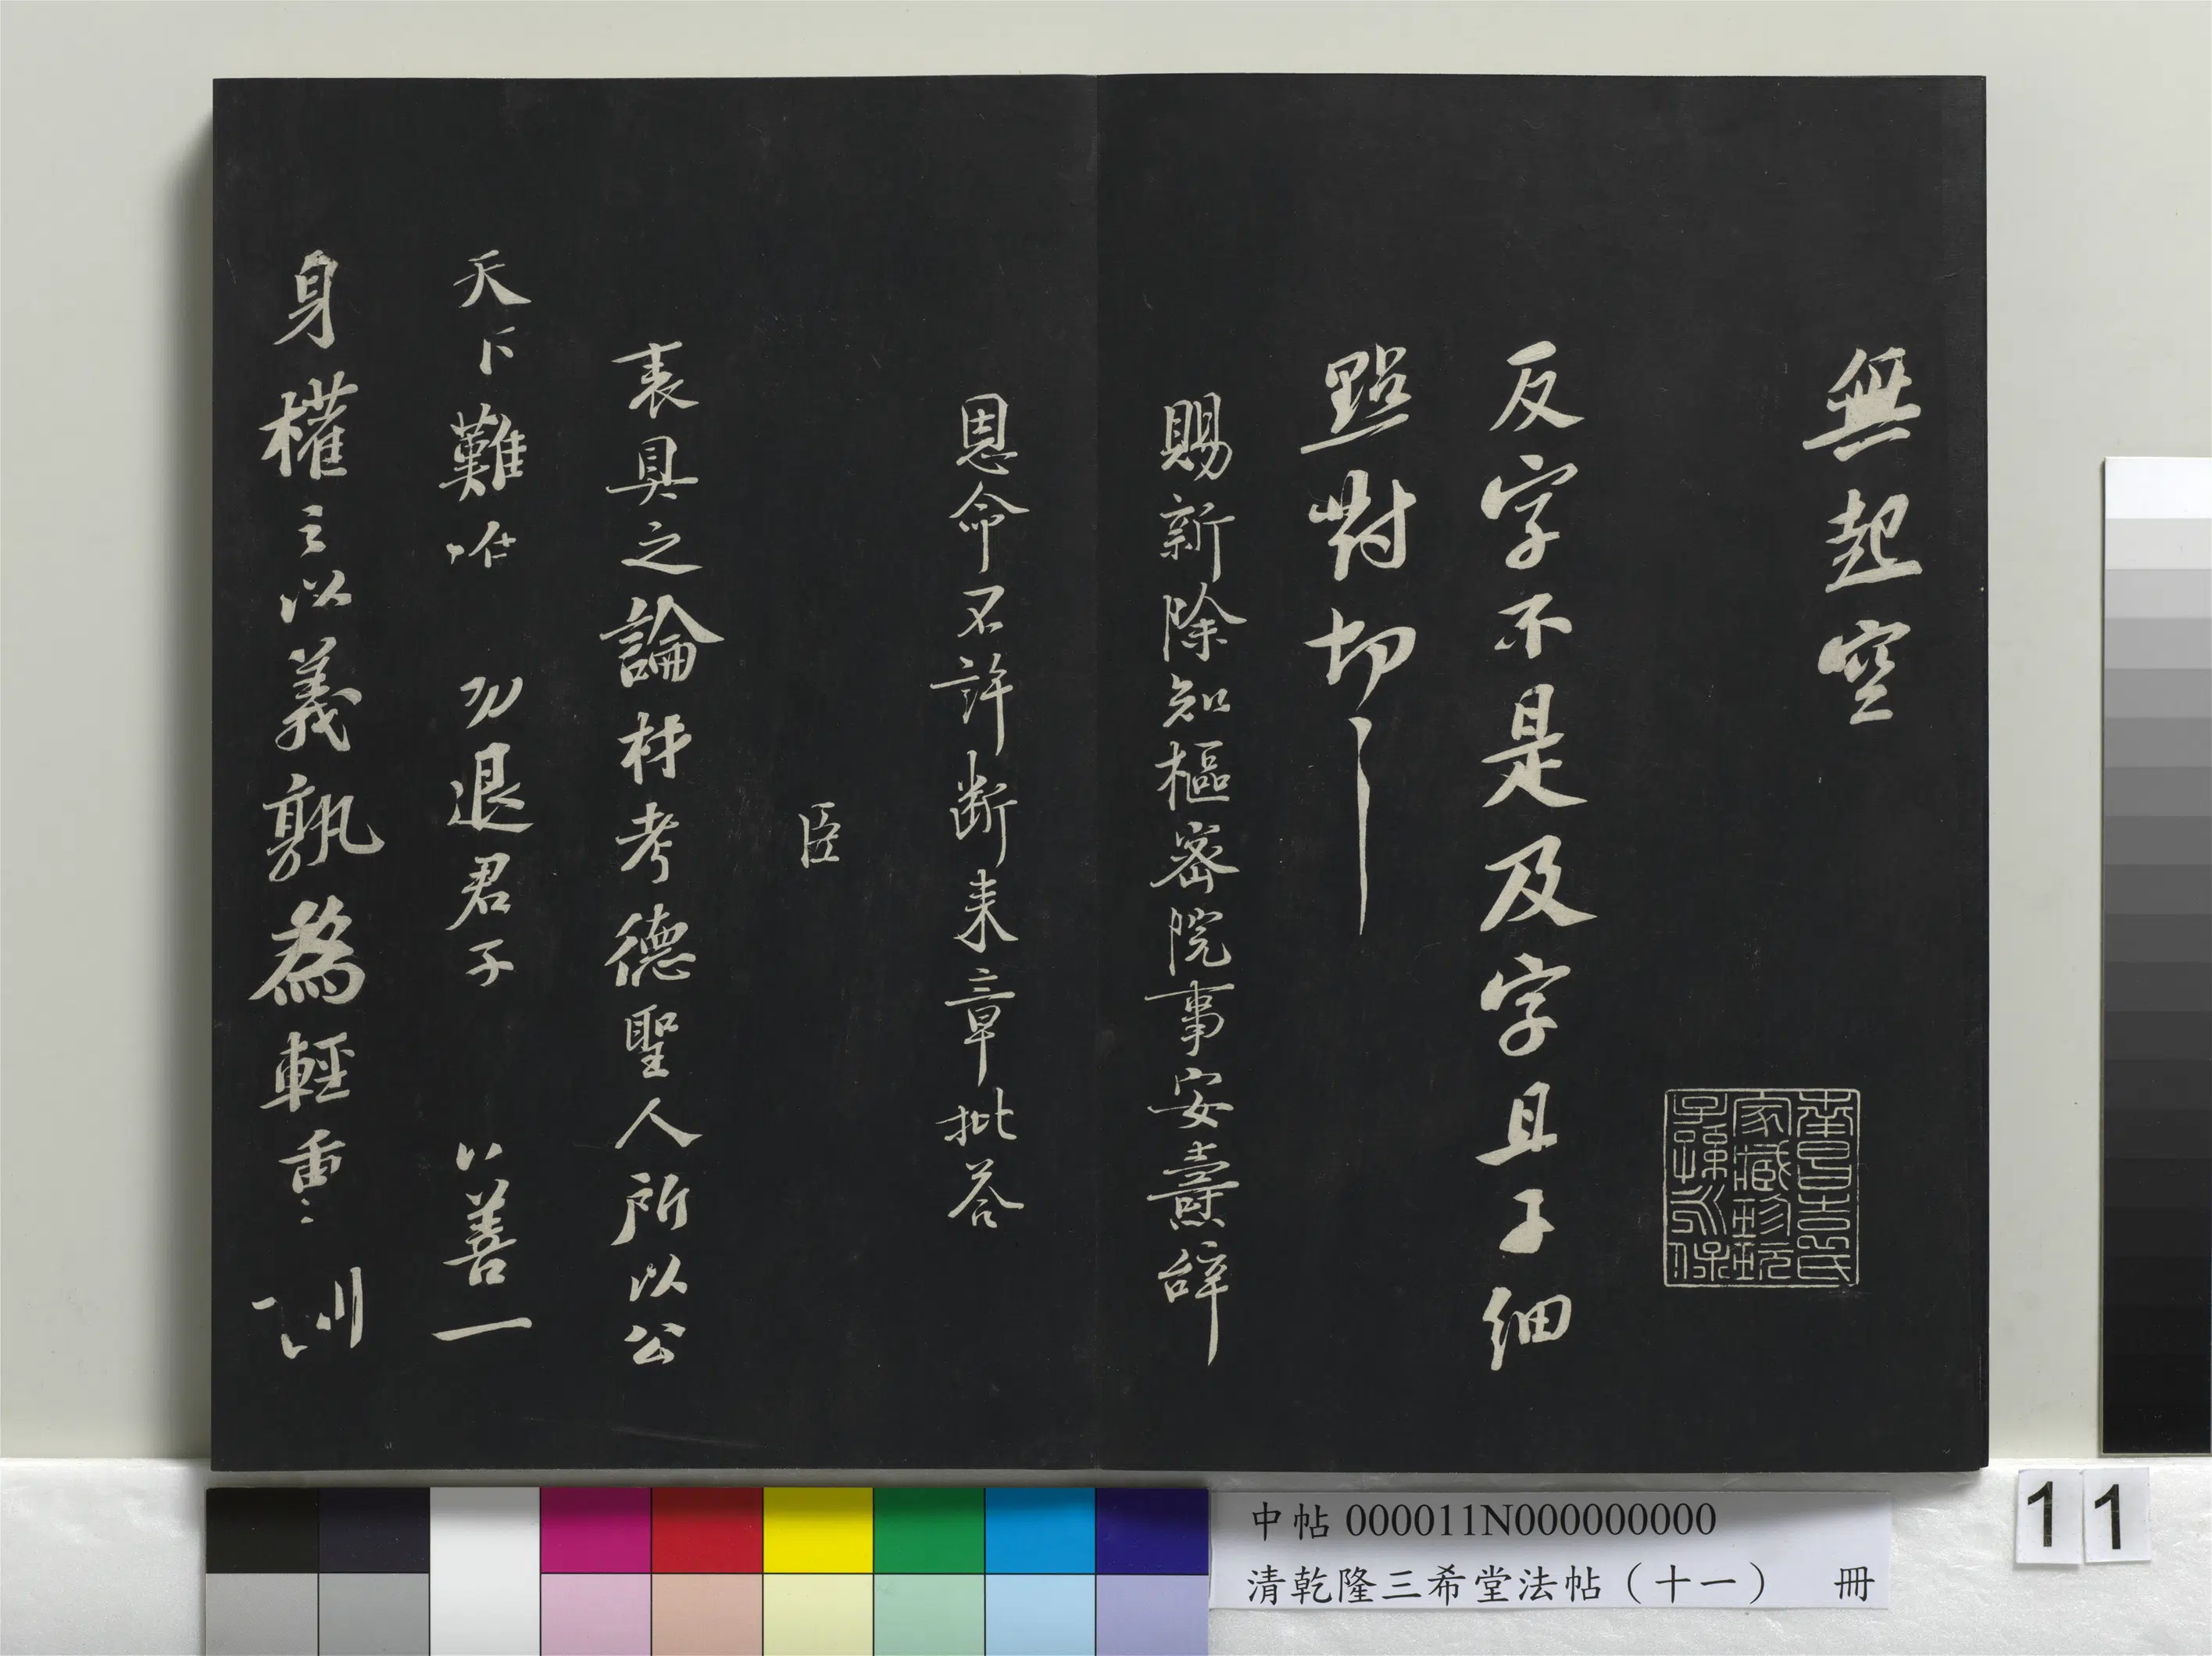 無起空
反字不是及字且子細
點對切〻
賜新除知樞密院事安燾辞
恩命不許斷来章批荅
臣
表具之論材考德聖人所以公
天下難
勿退君子
以善一
身權之以義孰為輕重
家藏珍玩
子孫永保
中帖 000011N000000000
清乾隆三希堂法帖（十一） 冊
11